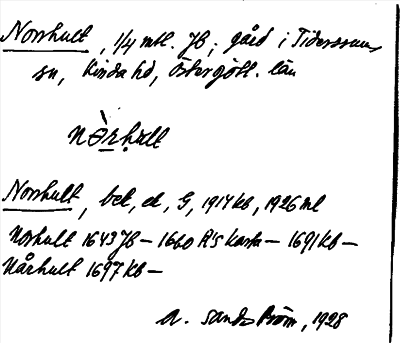 Norrhult, 1/4 mtl. JB; gård i Tidersrums
sn, Kinda hd, Östergötl. län
nə̀rhult
Norrhult, bet, el, G, 1917 kb, 1926 ml
Norhult 1643 JB — 1660 A's karta — 1691 kb —
Nårhult 1697 kb —
A. Sandström, 1928